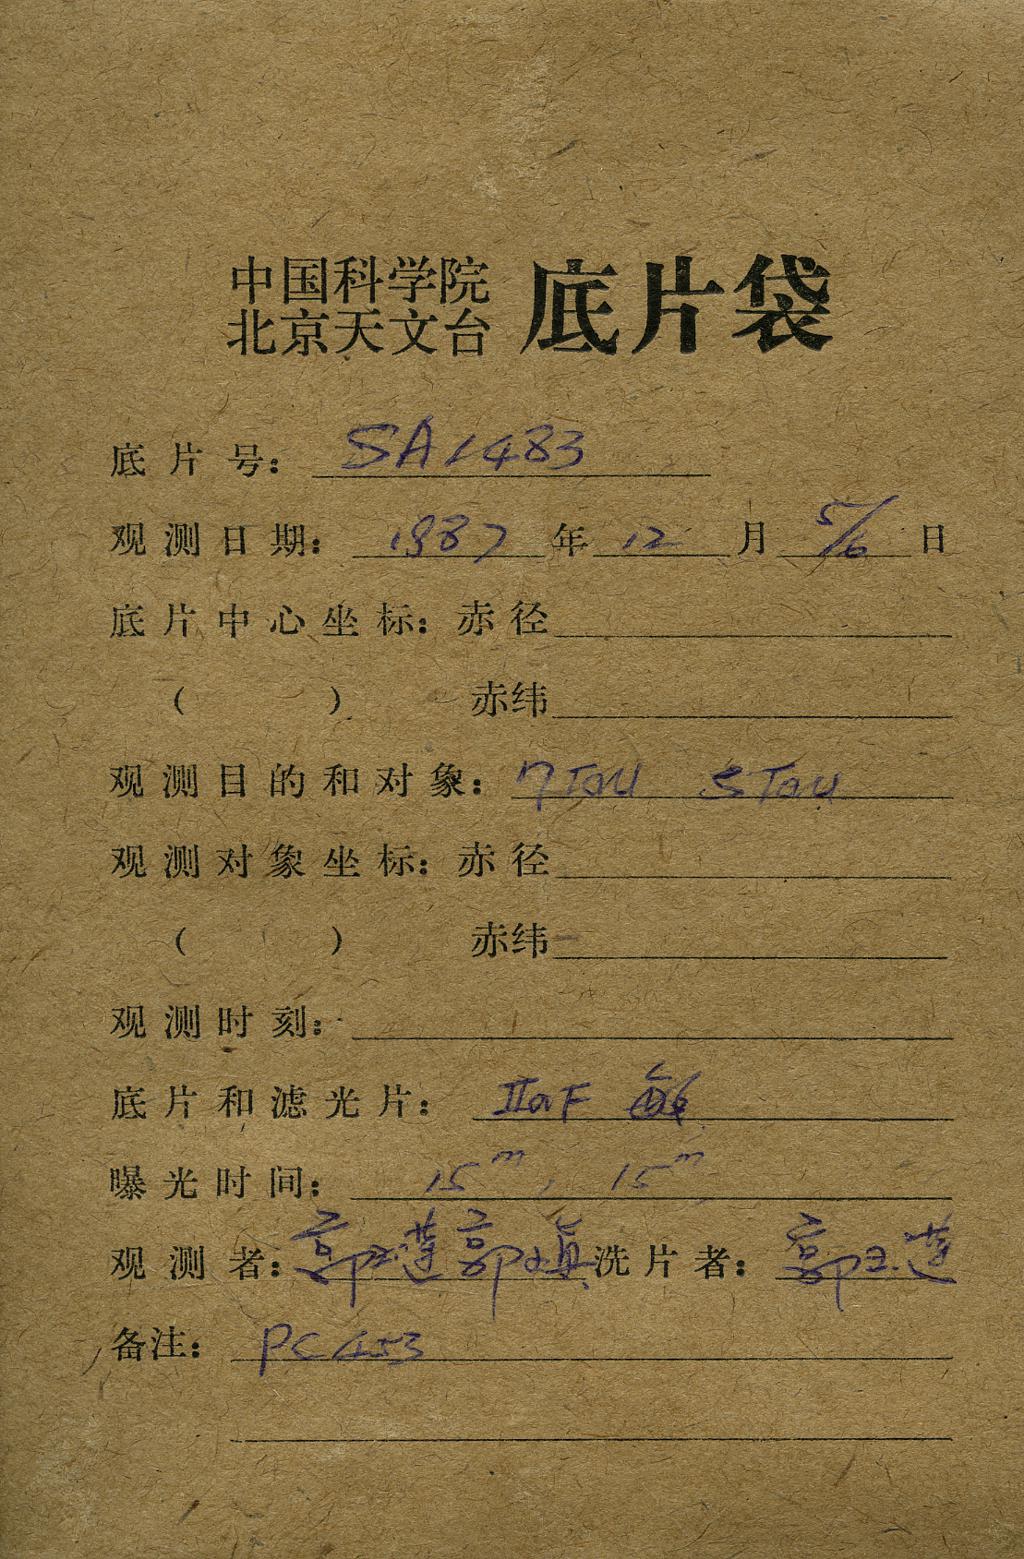 中国科学院
北京天文台
底片袋
底片号： SA1483
观测日期： 1987 年 12 月 5/6 日
底片中心坐标：赤径
（ ） 赤纬
观测目的和对象： Tau Tau
观测对象坐标：赤径
（ ） 赤纬
观测时刻：
底片和滤光片： IIaF 敏
曝光时间： 15ᵐ, 15ᵐ
观测者： 郭玉莲 郭 洗片者： 郭玉莲
备注： PC453